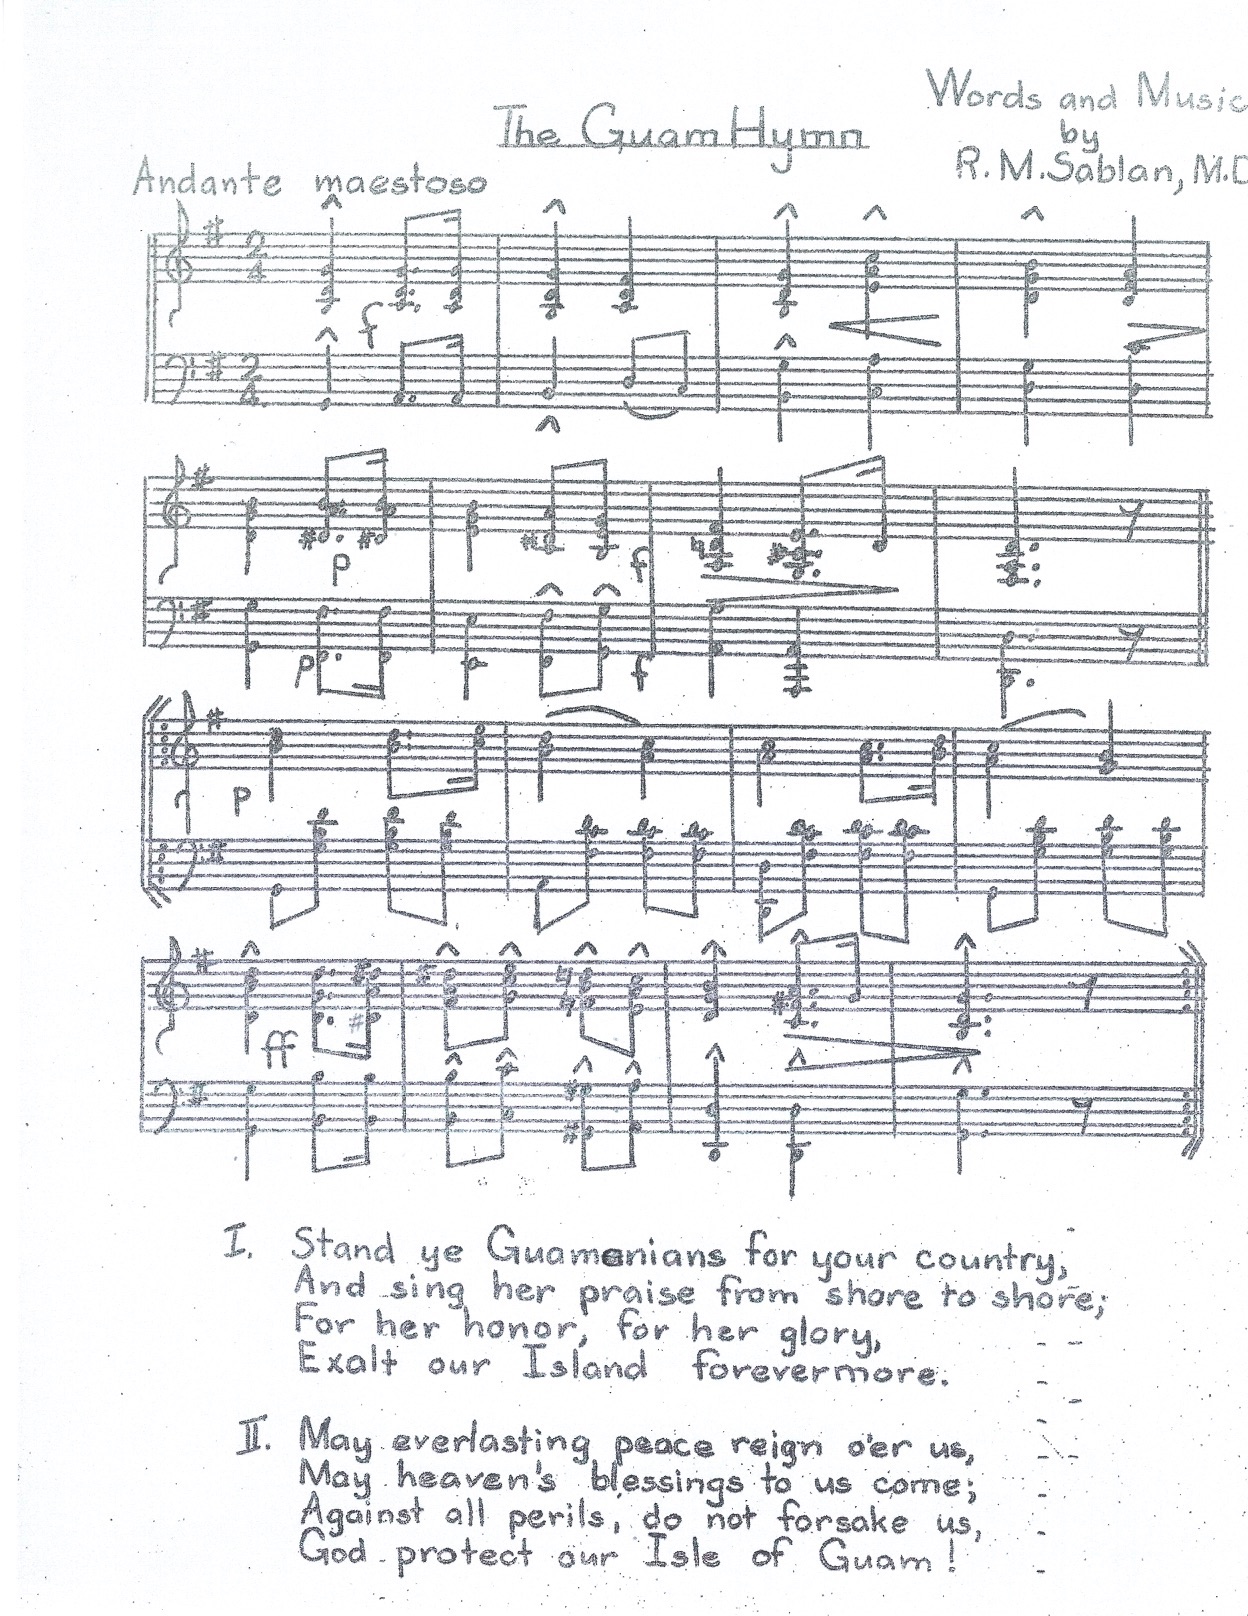 The Guam Hymn
Words and Music
by
R. M. Sablan, M.D
Andante maestoso
f
p
f
p
f
p
ff
I. Stand ye Guamanians for your country,
And sing her praise from shore to shore;
For her honor, for her glory,
Exalt our Island forevermore.
II. May everlasting peace reign o'er us,
May heaven's blessings to us come;
Against all perils, do not forsake us,
God protect our Isle of Guam!